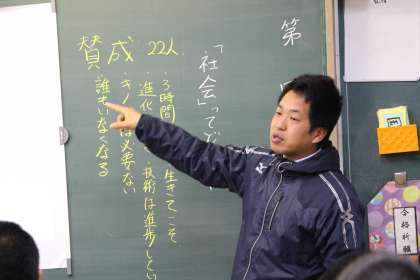 第
「社会」って
賛成 22人
・3時間 生きてこそ
・進化 技術は進歩してい
・キノ は必要ない
・誰もいなくなる
合格祈願